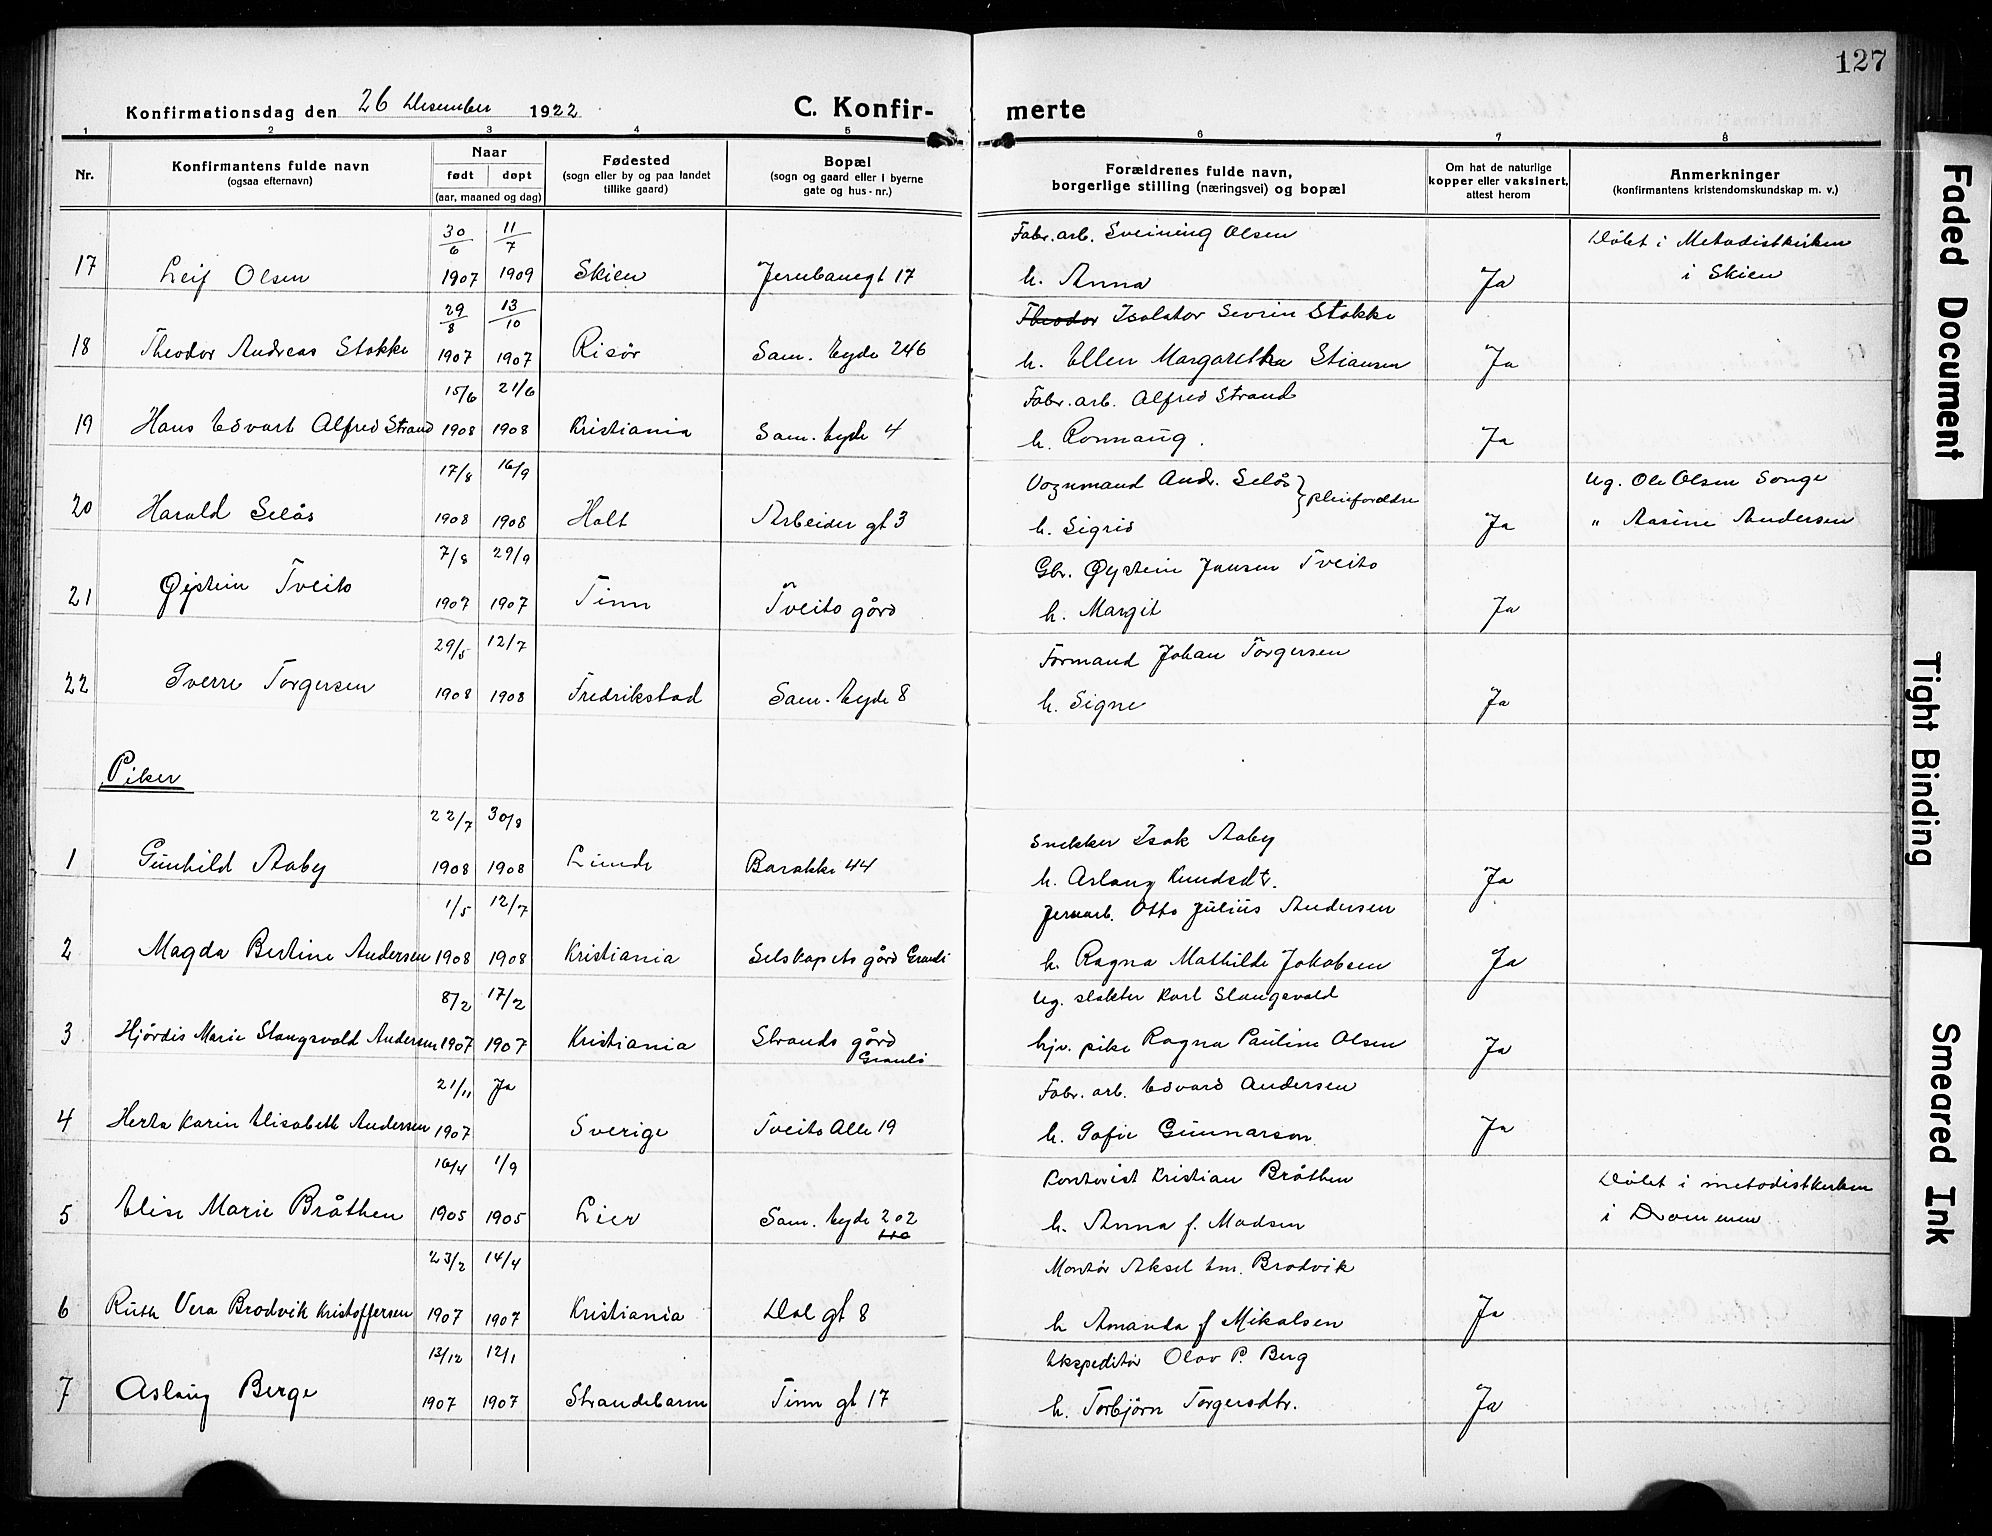 127
Konfirmationsdag den 26 Desember 1922
C. Konfir- merte
1 2 3 4 5 6 7 8
Nr.
Konfirmantens fulde navn
(ogsaa efternavn)
Naar
født døpt
(aar, maaned og dag)
Fødested
(sogn eller by og paa landet
tillike gaard)
Bopæl
(sogn og gaard eller i byerne
gate og hus-nr.)
Forældrenes fulde navn,
borgerlige stilling (næringsvei) og bopæl
Om hat de naturlige
kopper eller vaksinert,
attest herom
Anmerkninger
(konfirmantens kristendomskundskap m. v.)
30/6 11/7 Fabr. arb. Sveining Olsen Døbt i Metodistkirken
17 Leif Olsen 1907 1909 Skien Jernbanegt 17 h. Anna Ja i Skien
29/8 13/10 Theodor Isolatør Sevrin Stokke
18 Theodor Andreas Stokke 1907 1907 Risør Sam. Eyde 246 h. Ellen Margaretha Stiansen Ja
15/6 21/6 Fabr. arb. Alfred Strand
19 Hans Edvart Alfred Strand 1908 1908 Kristiania Sam. Eyde 4 h. Ronnaug. Ja
17/8 16/9 Vognmand Andr. Selås } pleieforældre Ug. Ole Olsen Songe
20 Harald Selås 1908 1908 Holt Arbeider gt 3 h. Sigrid Ja " Aasine Andersen
7/8 29/9 Gbr. Øystein Jansen Tveito
21 Øystein Tveito 1907 1907 Tinn Tveito gård h. Margit Ja
29/5 12/7 Formand Johan Torgersen
22 Sverre Torgersen 1908 1908 Fredrikstad Sam. Eyde 8 h. Signe Ja
Piker
22/7 30/8 Snekker Isak Aaby
1 Gunhild Aaby 1908 1908 Lunde Barakke 44 h. Aslaug Knudsdtr. Ja
1/5 12/7 Jernarb. Otto Julius Andersen
2 Magda Bertine Andersen 1908 1908 Kristiania Selskapets gård Grønli h. Ragna Mathilde Jakobsen Ja
8/2 17/2 Ug. slakter Karl Slangsvold
3 Hjørdis Marie Slangsvold Andersen 1907 1907 Kristiania Strands gård Grønli hjv. pike Ragna Pauline Olsen Ja
21/11 Ja Fabr. arb. Edvard Andersen
4 Herta Karin Elisabeth Andersen 1907 Sverige Tveito Alle 19 h. Sofie Gunnarson Ja
16/4 1/9 Kontorist Kristian Bråthen Døbt i metodistkirken
5 Elise Marie Bråthen 1905 1905 Lier Sam. Eyde 202 h. Anna f. Madsen i Drammen
23/2 14/4 Montør Aksel Em. Brodvik
6 Ruth Vera Brodvik Kristoffersen 1907 1907 Kristiania Dal gt 8 h Amanda f Mikalsen Ja
13/12 12/1 Ekspeditør Olav P. Berg
7 Aslaug Berge 1907 1907 Strandebarm Tinn gt 17 h. Torbjørn Torgersdtr. Ja
Faded Document
Tight Binding
Smeared Ink